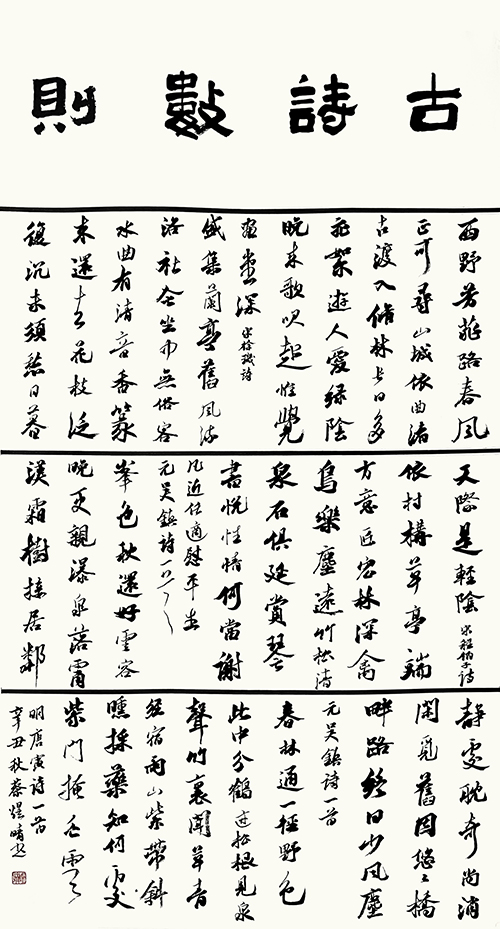 古詩數則
西野芳菲路春風
正可尋山城依曲渚
古渡入脩林長日多
飛絮遊人愛綠陰
晚來歌吹起惟覺
畫堂深 宋徐璣詩
盛集蘭亭舊風流
洛社今坐中無俗客
水曲有清音香篆
來還去花枝泛
復沉未須愁日暮
天際是輕陰 宋程伯子詩
依村構草亭端
方意匠宏林深禽
鳥樂塵遠竹松清
泉石俱延賞琴
書悅性情何當謝
凡近任適慰平生
元吳鎮詩一首
峯色秋還好雲容
晚更親瀑泉落霄
漢霜樹接居鄰
靜處耽奇尚消
閒覓舊因悠々橋
畔路終日少風塵
元吳鎮詩一首
春林通一徑野色
此中分鶴迹松根見泉
聲竹裏聞草青
經宿雨山紫帶斜
曛採藥知何處
柴門掩白雲
明唐寅詩一首
辛丑秋蔡煜晴書